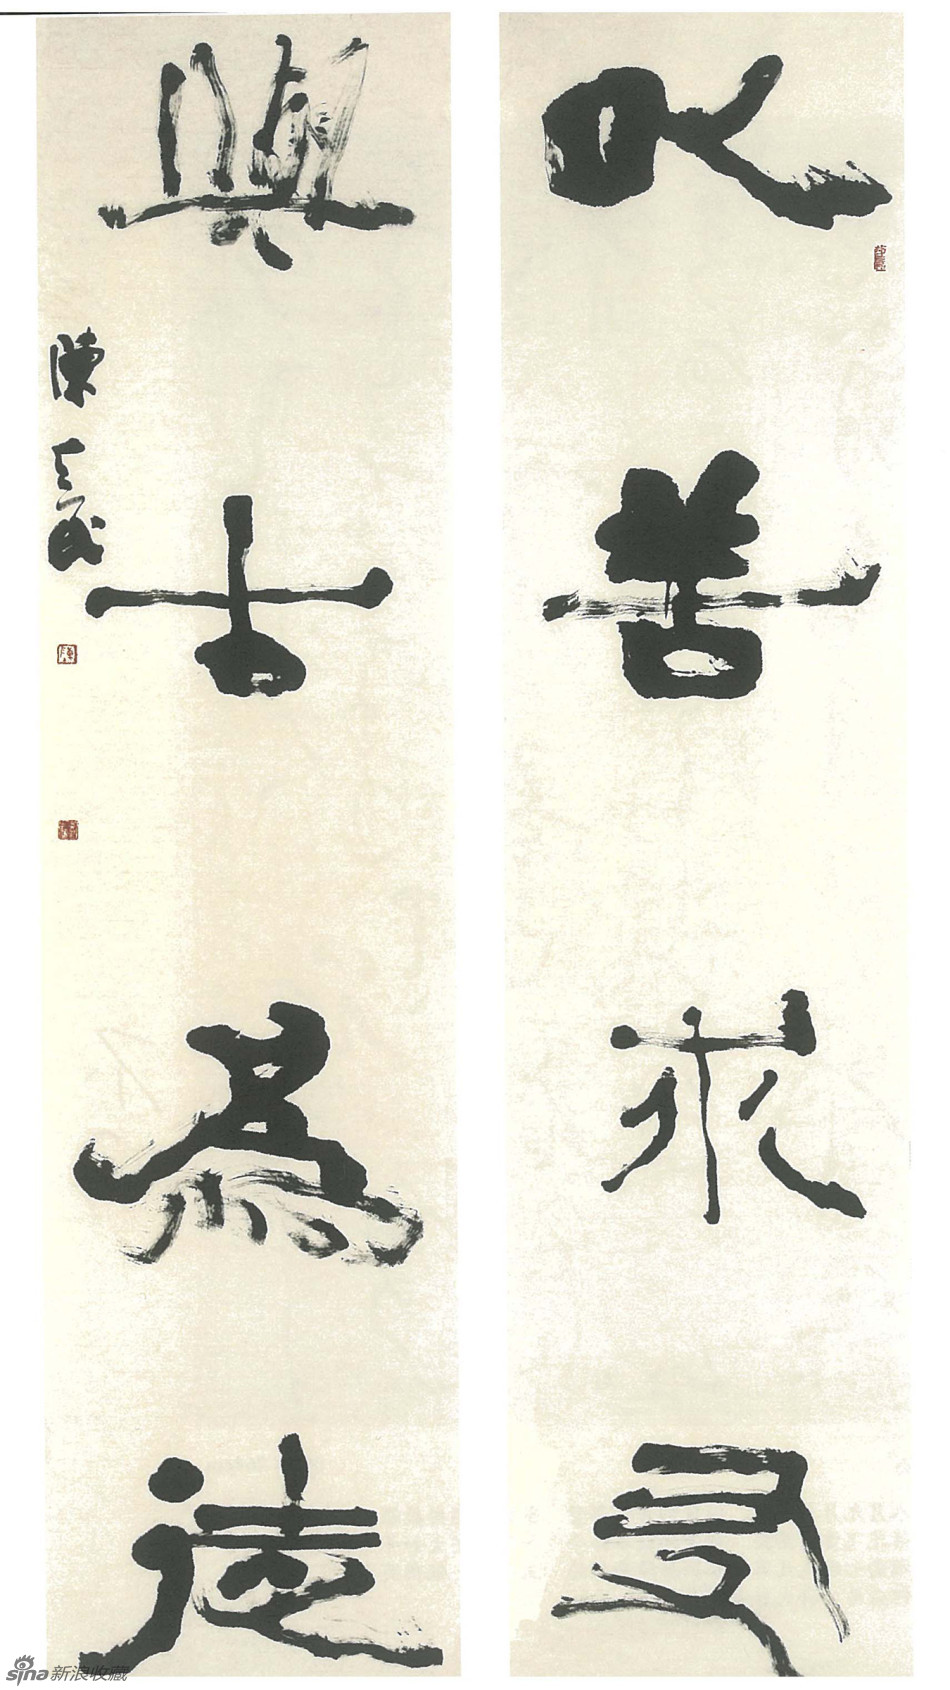 以善求友
與古為徒
陳
sina新浪收藏